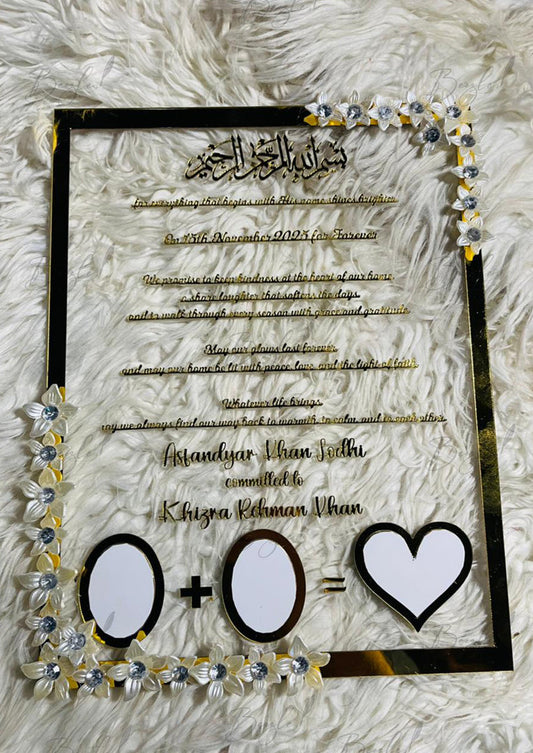 بسم الله الرحمن الرحيم
for everything that begins with His name shines brighter
On 15th November 2025 for Forever
We promise to keep kindness at the heart of our home,
a share laughter that softens the days,
and to walk through every season with grace and gratitude.
May our glows last forever,
and may our home be lit with peace, love, and the light of faith.
Whatever life brings,
may we always find our way back to warmth, to calm, and to each other.
Asfandyar Khan Lodhi
committed to
Khizra Rehman Khan
+ =